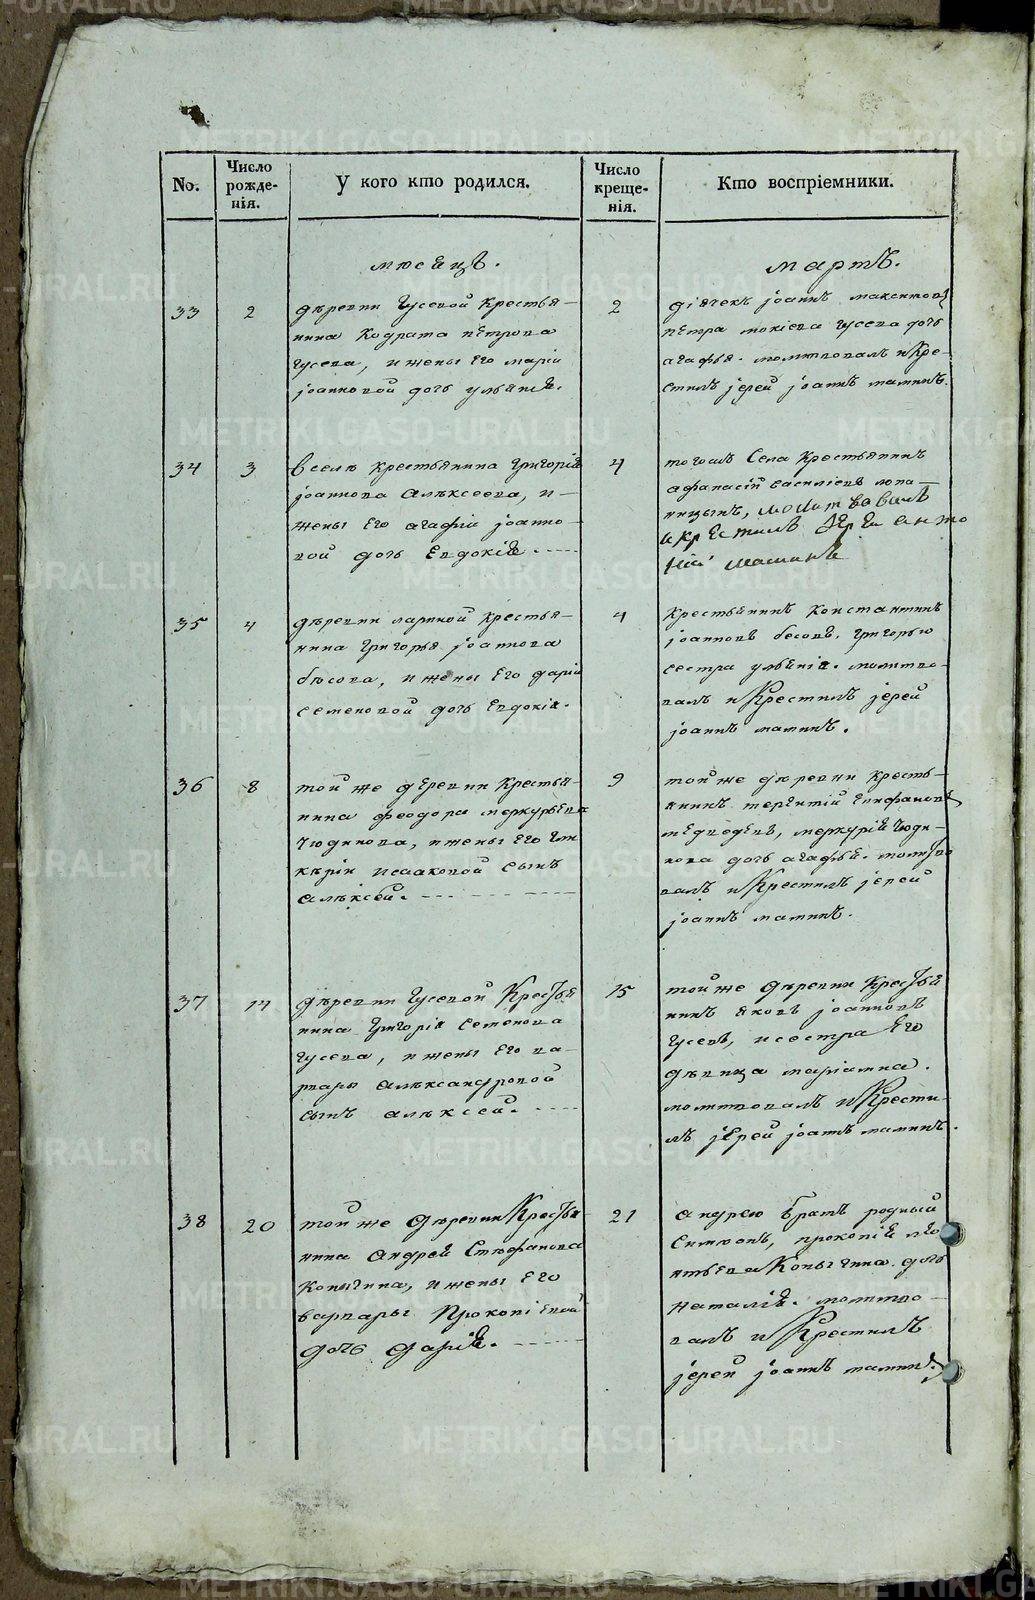 No.
Число рожде-
нія.
У кого кто родился.
Число креще-
нія.
Кто воспріемники.
месяцъ.
мартъ.
33
2
деревни Гусевой Крестья-
нина Кодрата петрова
гусева, и жены Его маріи
іоанновой дочь ульянія.
2
діячекъ іоаннъ максимовъ
петра мокіева гусева дочь
агафья. молитвовалъ и Кре-
стилъ іерей іоаннъ маминъ.
34
3
в селе крестьянина григорія
іоаннова Алексеева, и
жены Его агафіи іоанно-
вой дочь Евдокія
4
тогожъ Села Крестьянинъ
афанасій василіевъ
молитвовалъ
и крестилъ іерей анто
ній маминъ
35
4
деревни лариной крестья-
нина григорья іоаннова
бесова, и жены Его даріи
семеновой дочь Евдокія.
4
крестьянинъ константинъ
іоанновъ бесовъ, григорью
сестра ульянія. молитво-
валъ и Крестилъ іерей
іоаннъ маминъ.
36
8
той же деревни крестья-
нина феодора меркурьева
чюдинова, и жены Его гли
керіи исааковой сынъ
алексей.
9
той же деревни кресть-
янинъ терентій епифановъ
медведевъ, меркурія чюди-
нова дочь агафья. молитво
валъ и Крестилъ іерей
іоаннъ маминъ.
37
14
деревни гусевой Крестья
нина григорія семенова
гусева, и жены его ва-
рвары александровой
сынъ алексей.
15
той же деревни Крестья
нинъ яковъ іоанновъ
гусевъ, и сестра Его
девица маріамна.
молитвовалъ и Крести-
лъ іерей іоаннъ маминъ.
38
20
той же деревни Крестья
нина Андрея Стефанова
Копыгина, и жены Его
варвары Прокопіевой
дочь дарія.
21
андрею братъ родный
Симеонъ, прокопія лео
нтьева Копыгина дочь
наталія. молитво-
валъ и Крестилъ
іерей іоаннъ маминъ.
METRIKI.GASO-URAL.RU